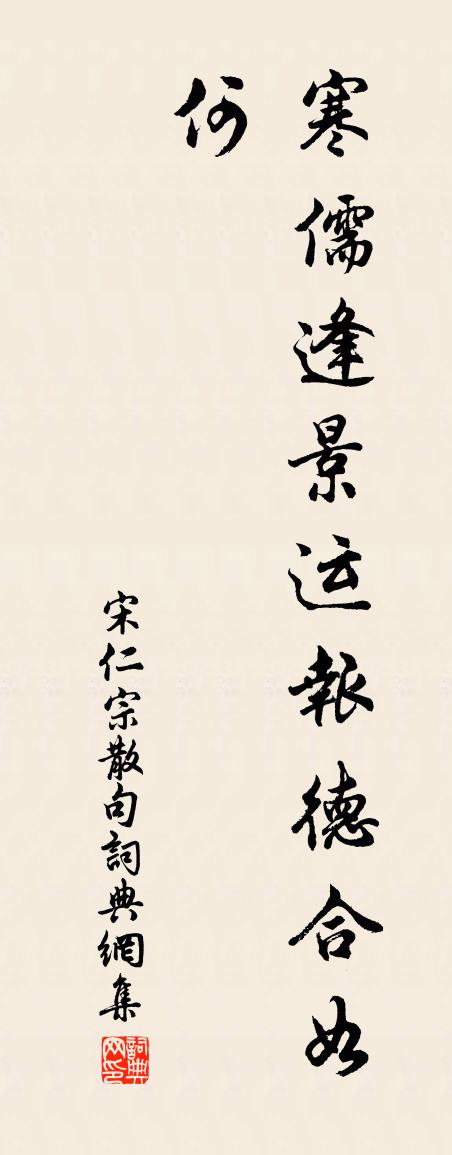 寒儒逢景运報德合如
何
宋仁宗散句詞典網集
詞典网印